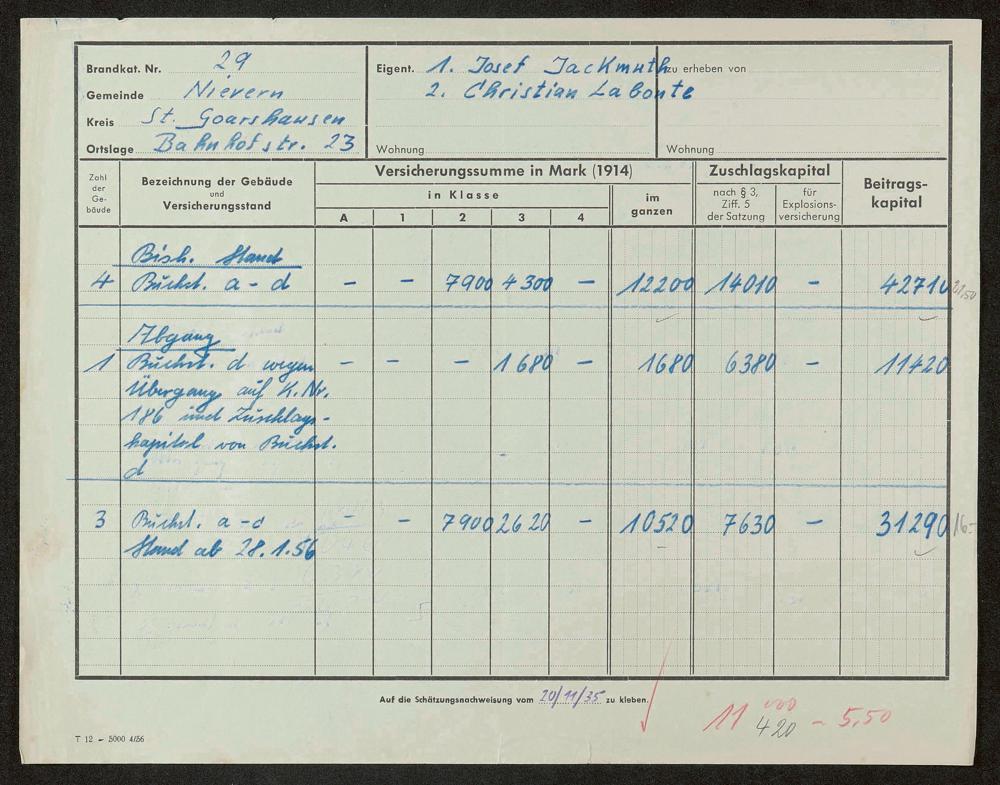 Brandkat. Nr. 29
Gemeinde Nievern
Kreis St. Goarshausen
Ortslage Bahnhofstr. 23
Eigent. 1. Josef Jackmuth
2. Christian Labonte
Wohnung
zu erheben von
Wohnung
Zahl der Ge-bäude
Bezeichnung der Gebäude
und
Versicherungsstand
Versicherungssumme in Mark (1914)
in Klasse
A 1 2 3 4
im ganzen
Zuschlagskapital
nach § 3, Ziff. 5 der Satzung
für Explosions-versicherung
Beitrags-kapital
Bish. Stand
4 Buchst. a - d - - 7900 4300 - 12200 14010 - 42710
Abgang
1 Buchst. d wegen - - - 1680 - 1680 6380 - 11420
Übergang auf K.Nr.
186 und Zuschlags-
kapital von Buchst.
d
3 Buchst. a - - - 7900 2620 - 10520 7630 - 31290 16.-
Stand ab 28.1.56
Auf die Schätzungsnachweisung vom 20/11/35 zu kleben.
11 000 - 5,50
420
T 12 - 5000 4/56